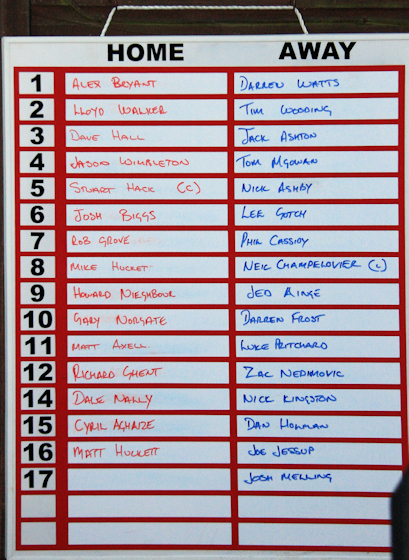 HOME AWAY
1 ALEX BRYANT DARREN WATTS
2 LLOYD WALKER TIM WOODING
3 DAVE HALL JACK ASHTON
4 JASON WIMBLETON TOM MGOWAN
5 STUART HACK (C) NICK ASHBY
6 JOSH BIGGS LEE GOTCH
7 ROB GROVE PHIL CASSIDY
8 MIKE HUCKET NEIL CHAMPELOVIER (C)
9 HOWARD NIEGHBOUR JED AINGE
10 GARY NORGATE DARREN FROST
11 MATT AXELL LUKE PRITCHARD
12 RICHARD GHENT ZAC NEDIMOVIC
14 DALE NALLY NICK KINGSTON
15 CYRIL AGHAIZE DAN HOLMAN
16 MATT HUCKETT JOE JESSUP
17 JOSH MELLING